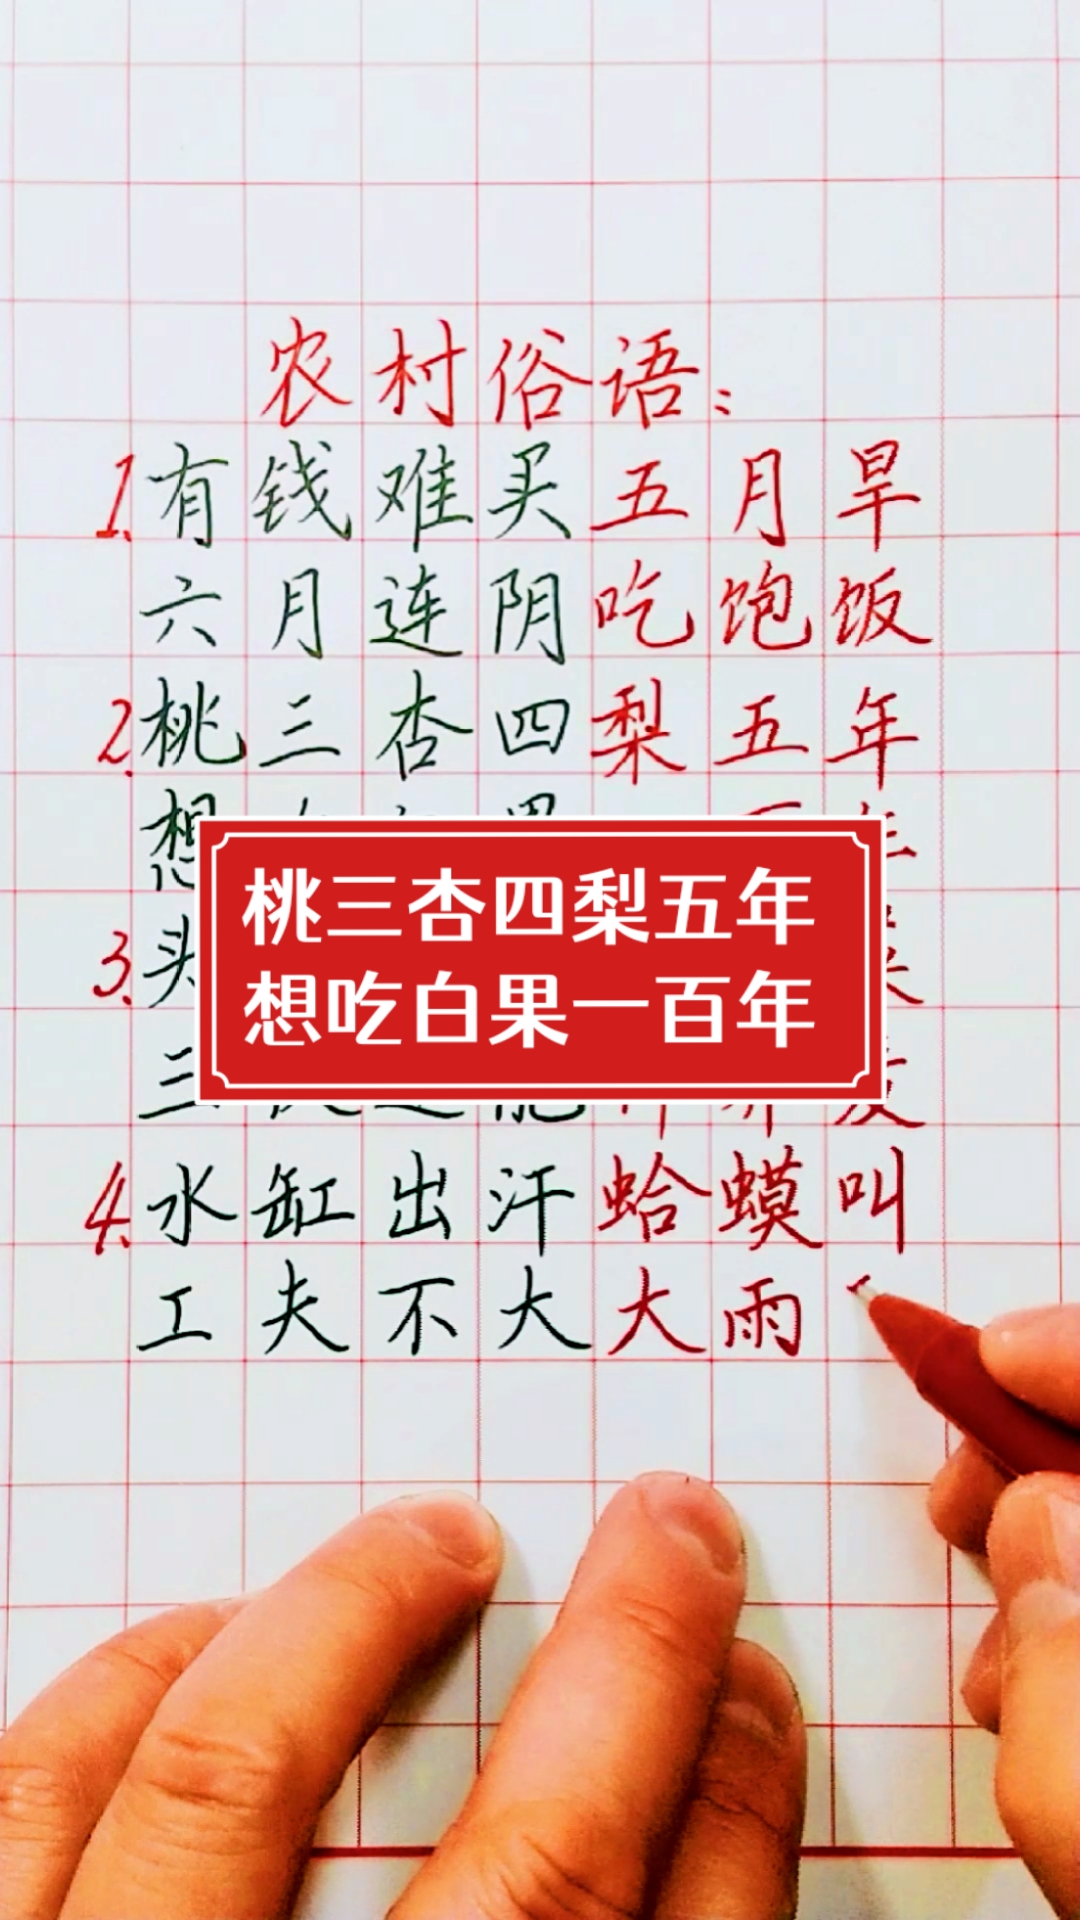 农村俗语：
1.有钱难买五月旱
六月连阴吃饱饭
2.桃三杏四梨五年
想
桃三杏四梨五年
想吃白果一百年
3.头
三
4.水缸出汗蛤蟆叫
工夫不大大雨